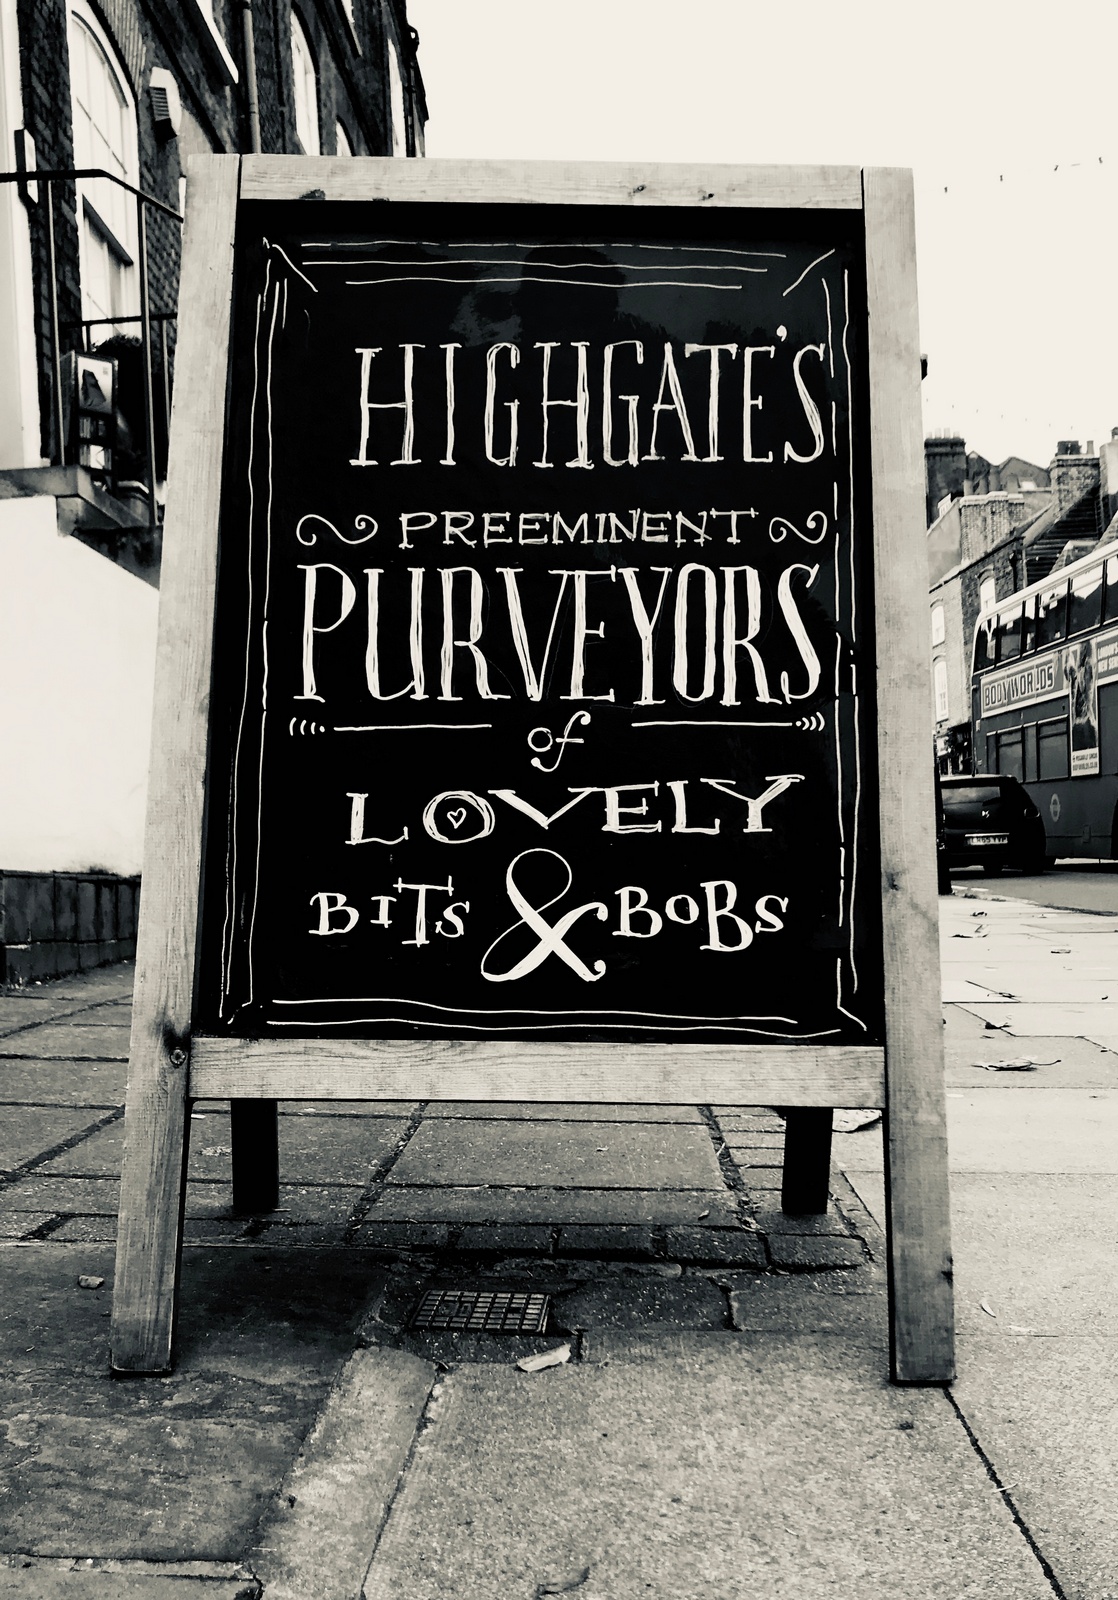 HIGHGATE'S
PREEMINENT
PURVEYORS
of
LOVELY
BITS & BOBS
BODY WORLDS